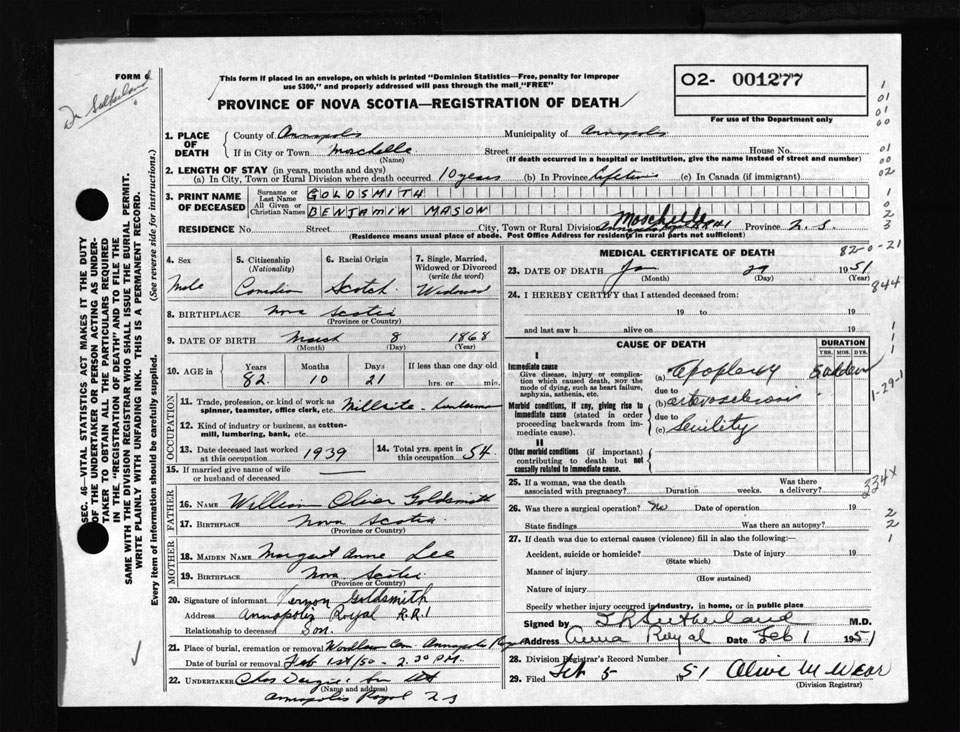 FORM 6
Dr Sutherland
This form if placed in an envelope, on which is printed "Dominion Statistics—Free, penalty for improper
use $300," and properly addressed will pass through the mail "FREE"
PROVINCE OF NOVA SCOTIA—REGISTRATION OF DEATH
02- 001277
For use of the Department only
1. PLACE OF DEATH
County of Annapolis Municipality of Annapolis
If in City or Town Moschelle Street House No.
(Name) (If death occurred in a hospital or institution, give the name instead of street and number)
2. LENGTH OF STAY (in years, months and days)
(a) In City, Town or Rural Division where death occurred 10 years (b) In Province Lifetime (c) In Canada (if immigrant)
3. PRINT NAME OF DECEASED
Surname or Last Name GOLDSMITH
All Given or Christian Names BENJAMIN MASON
Moschelle
RESIDENCE No. Street City, Town or Rural Division Province N. S.
(Residence means usual place of abode. Post Office Address for residents in rural parts not sufficient)
4. Sex
Male
5. Citizenship
(Nationality)
Canadian
6. Racial Origin
Scotch
7. Single, Married,
Widowed or Divorced
(write the word)
Widowed
8. BIRTHPLACE Nova Scotia
(Province or Country)
9. DATE OF BIRTH March 8 1868
(Month) (Day) (Year)
10. AGE in
Years Months Days If less than one day old
82 10 21 hrs. or min.
OCCUPATION
11. Trade, profession or kind of work as
spinner, teamster, office clerk, etc.
12. Kind of industry or business, as cotton-
mill, lumbering, bank, etc.
13. Date deceased last worked
at this occupation 1939
14. Total yrs. spent in
this occupation 54
15. If married give name of wife
or husband of deceased
FATHER
16. NAME William Oliver Goldsmith
17. BIRTHPLACE Nova Scotia
(Province or Country)
MOTHER
18. MAIDEN NAME Margaret Anne Lee
19. BIRTHPLACE Nova Scotia
(Province or Country)
20. Signature of informant Vernon Goldsmith
Address Annapolis Royal R.R.1
Relationship to deceased Son.
21. Place of burial, cremation or removal Woodlawn Cem. Annapolis Royal
Date of burial or removal Feb 1st/50 - 2.30 PM.
22. UNDERTAKER
(Name and address)
Annapolis Royal N S
MEDICAL CERTIFICATE OF DEATH
82-0-21
23. DATE OF DEATH Jan 29 1951
(Month) (Day) (Year)
844
24. I HEREBY CERTIFY that I attended deceased from:
19 to 19
and last saw h alive on 19
CAUSE OF DEATH
DURATION
YRS. MOS. DYS.
I
Immediate cause
Give disease, injury or complica-
tion which caused death, not the
mode of dying, such as heart failure,
asphyxia, asthenia, etc.
(a) Apoplexy Sudden
due to
Morbid conditions, if any, giving rise to
immediate cause (stated in order
proceeding backwards from im-
mediate cause).
(b) arteriosclerosis
due to
(c) Senility
1-29-1
II
Other morbid conditions (if important)
contributing to death but not
causally related to immediate cause.
25. If a woman, was the death
associated with pregnancy? Duration weeks.
Was there
a delivery?
334X
26. Was there a surgical operation? No Date of operation 19
State findings Was there an autopsy?
27. If death was due to external causes (violence) fill in also the following:—
Accident, suicide or homicide? Date of injury 19
(State which)
Manner of injury
(How sustained)
Nature of injury
Specify whether injury occurred in industry, in home, or in public place
Signed by Sutherland M.D.
Address Anna Royal Date Feb 1 1951
28. Division Registrar's Record Number
29. Filed Feb 5 1951 Olive M Wear
(Division Registrar)
SEC. 46—VITAL STATISTICS ACT MAKES IT THE DUTY
OF THE UNDERTAKER OR PERSON ACTING AS UNDER-
TAKER TO OBTAIN ALL THE PARTICULARS REQUIRED
IN THE "REGISTRATION OF DEATH" AND TO FILE THE
SAME WITH THE DIVISION REGISTRAR WHO SHALL ISSUE THE BURIAL PERMIT.
WRITE PLAINLY WITH UNFADING INK. THIS IS A PERMANENT RECORD.
Every item of information should be carefully supplied. (See reverse side for instructions.)